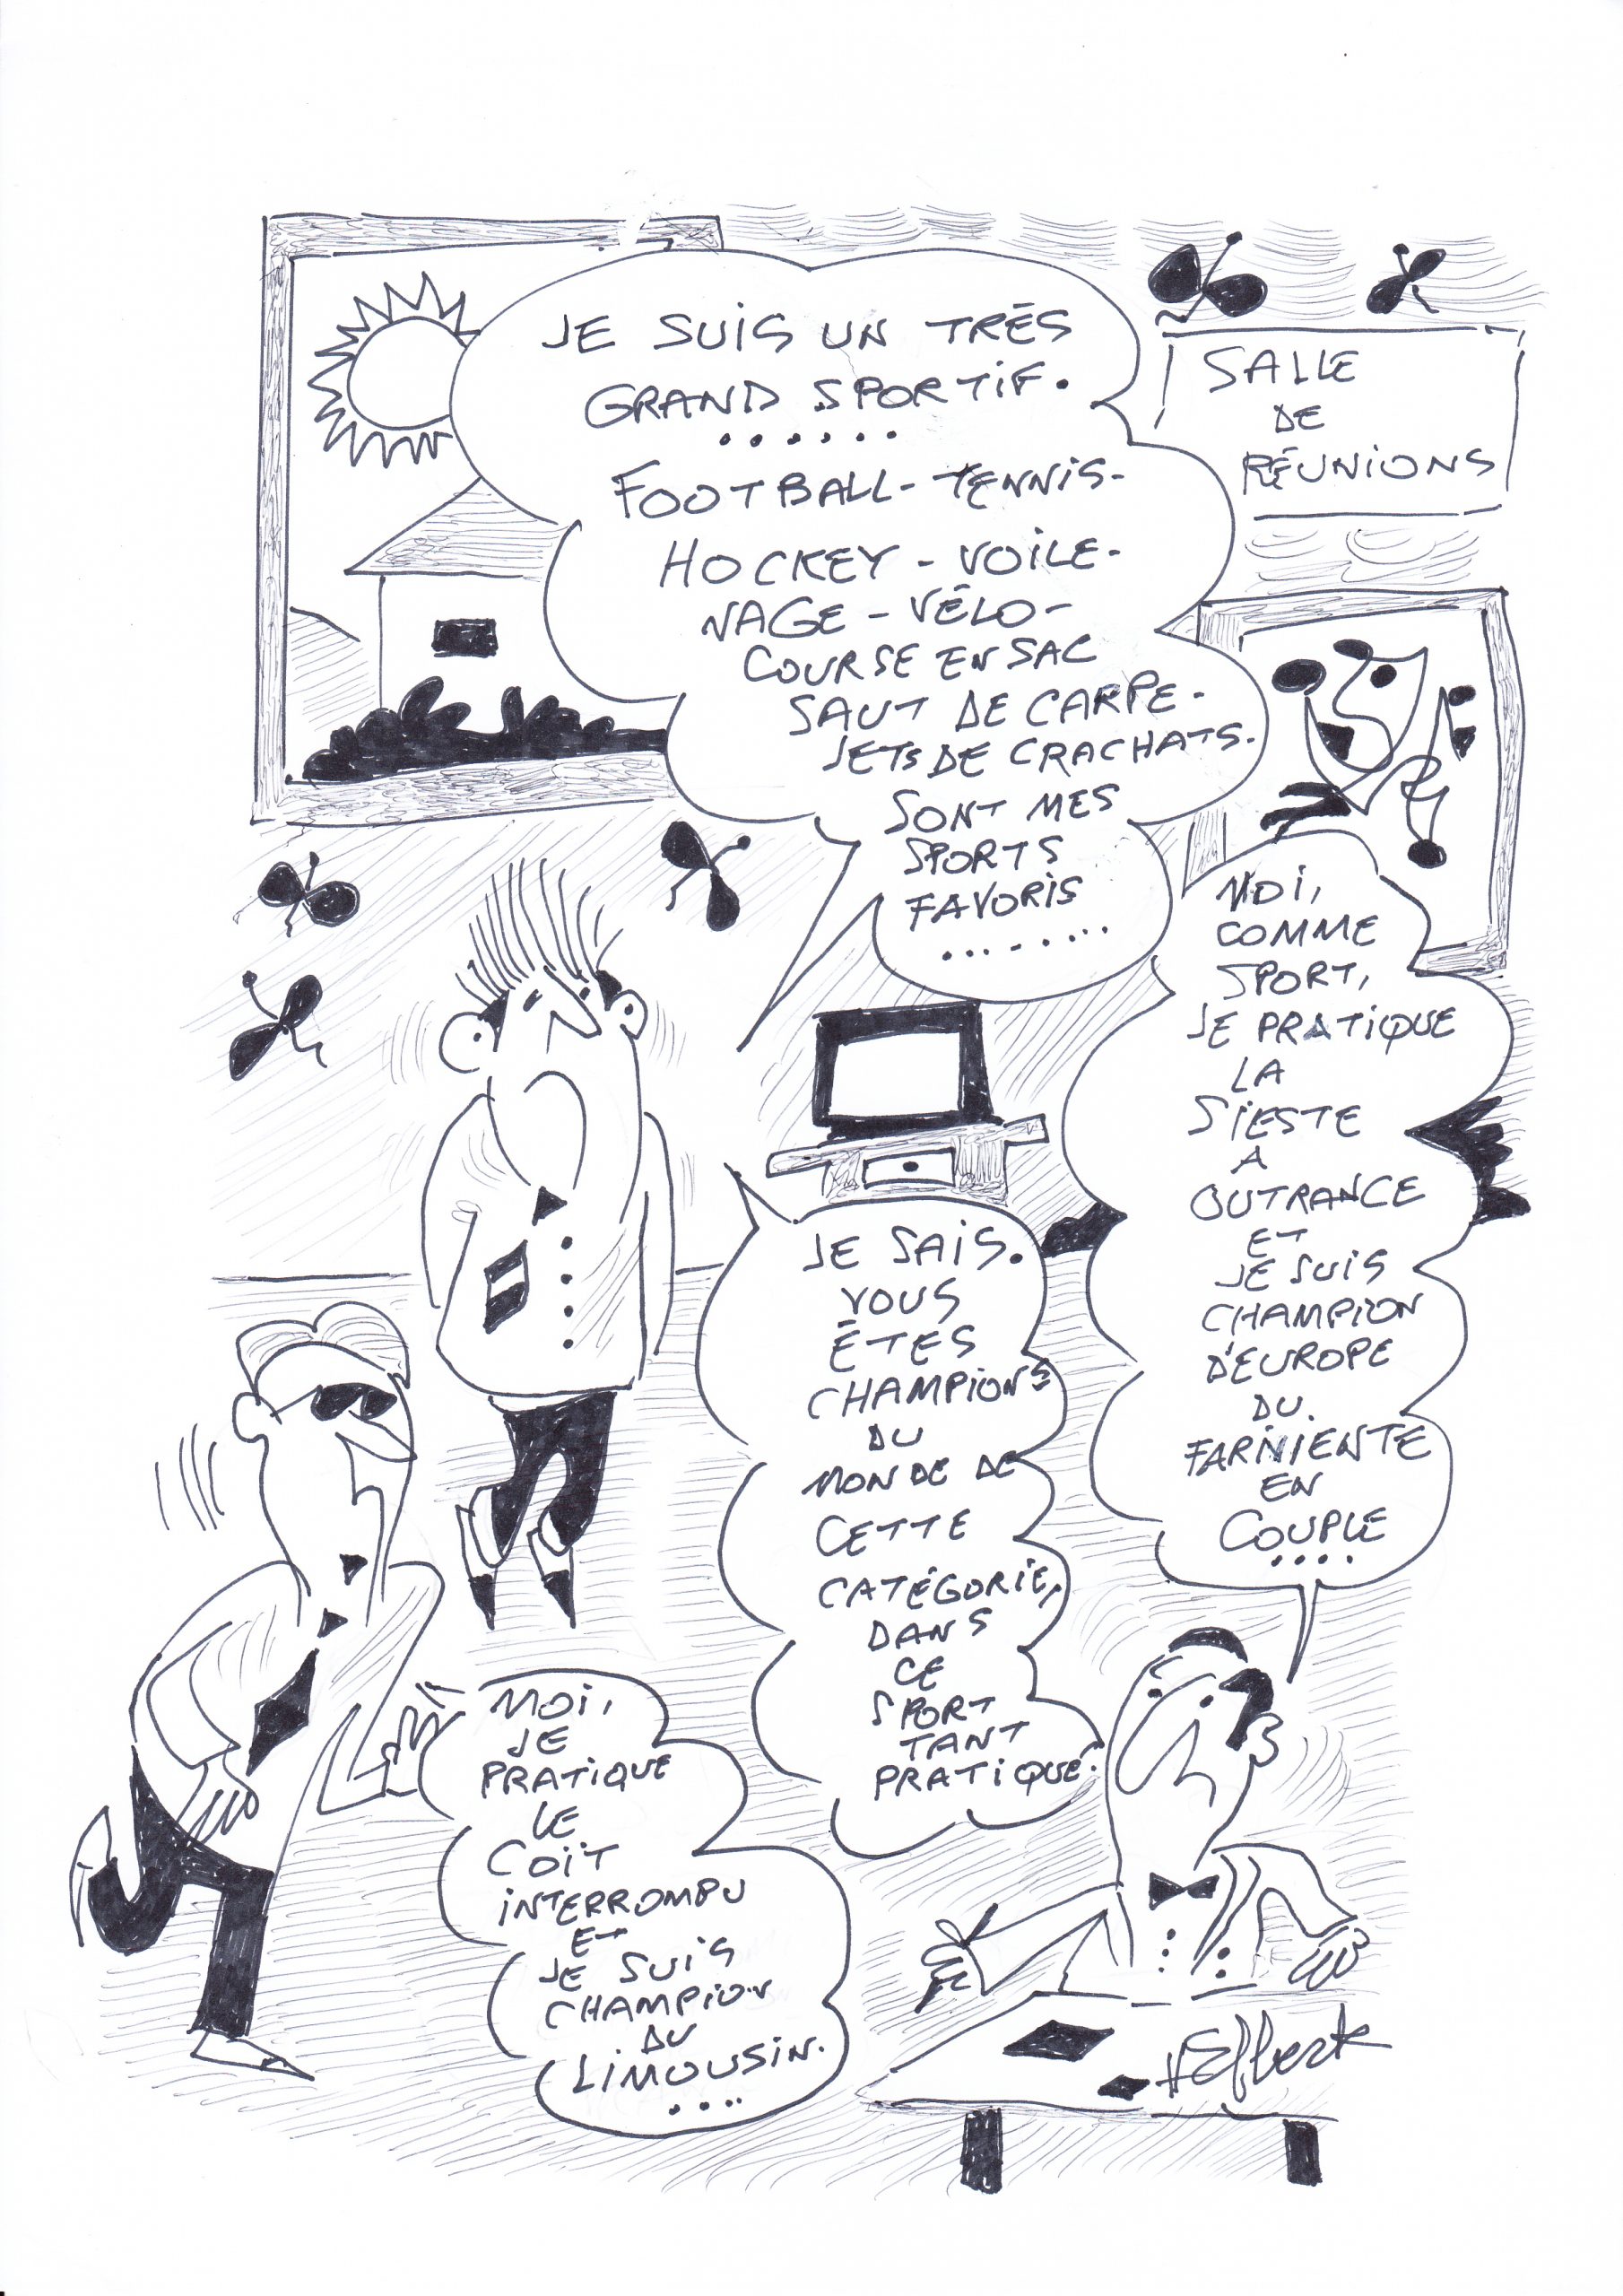 JE SUIS UN TRÈS
GRAND SPORTIF.
......
FOOTBALL - TENNIS -
HOCKEY - VOILE -
NAGE - VÉLO -
COURSE EN SAC
SAUT DE CARPE -
JETS DE CRACHATS.
SONT MES
SPORTS
FAVORIS
.......
SALLE
DE
RÉUNIONS
MOI,
COMME
SPORT,
JE PRATIQUE
LA
SIESTE
A
OUTRANCE
ET
JE SUIS
CHAMPION
D'EUROPE
DU
FARNIENTE
EN
COUPLE
....
JE SAIS.
VOUS
ÊTES
CHAMPIONS
DU
MONDE DE
CETTE
CATÉGORIE,
DANS
CE
SPORT
TANT
PRATIQUÉ.
MOI,
JE
PRATIQUE
LE
COÏT
INTERROMPU
ET
JE SUIS
CHAMPION
DU
LIMOUSIN.
....